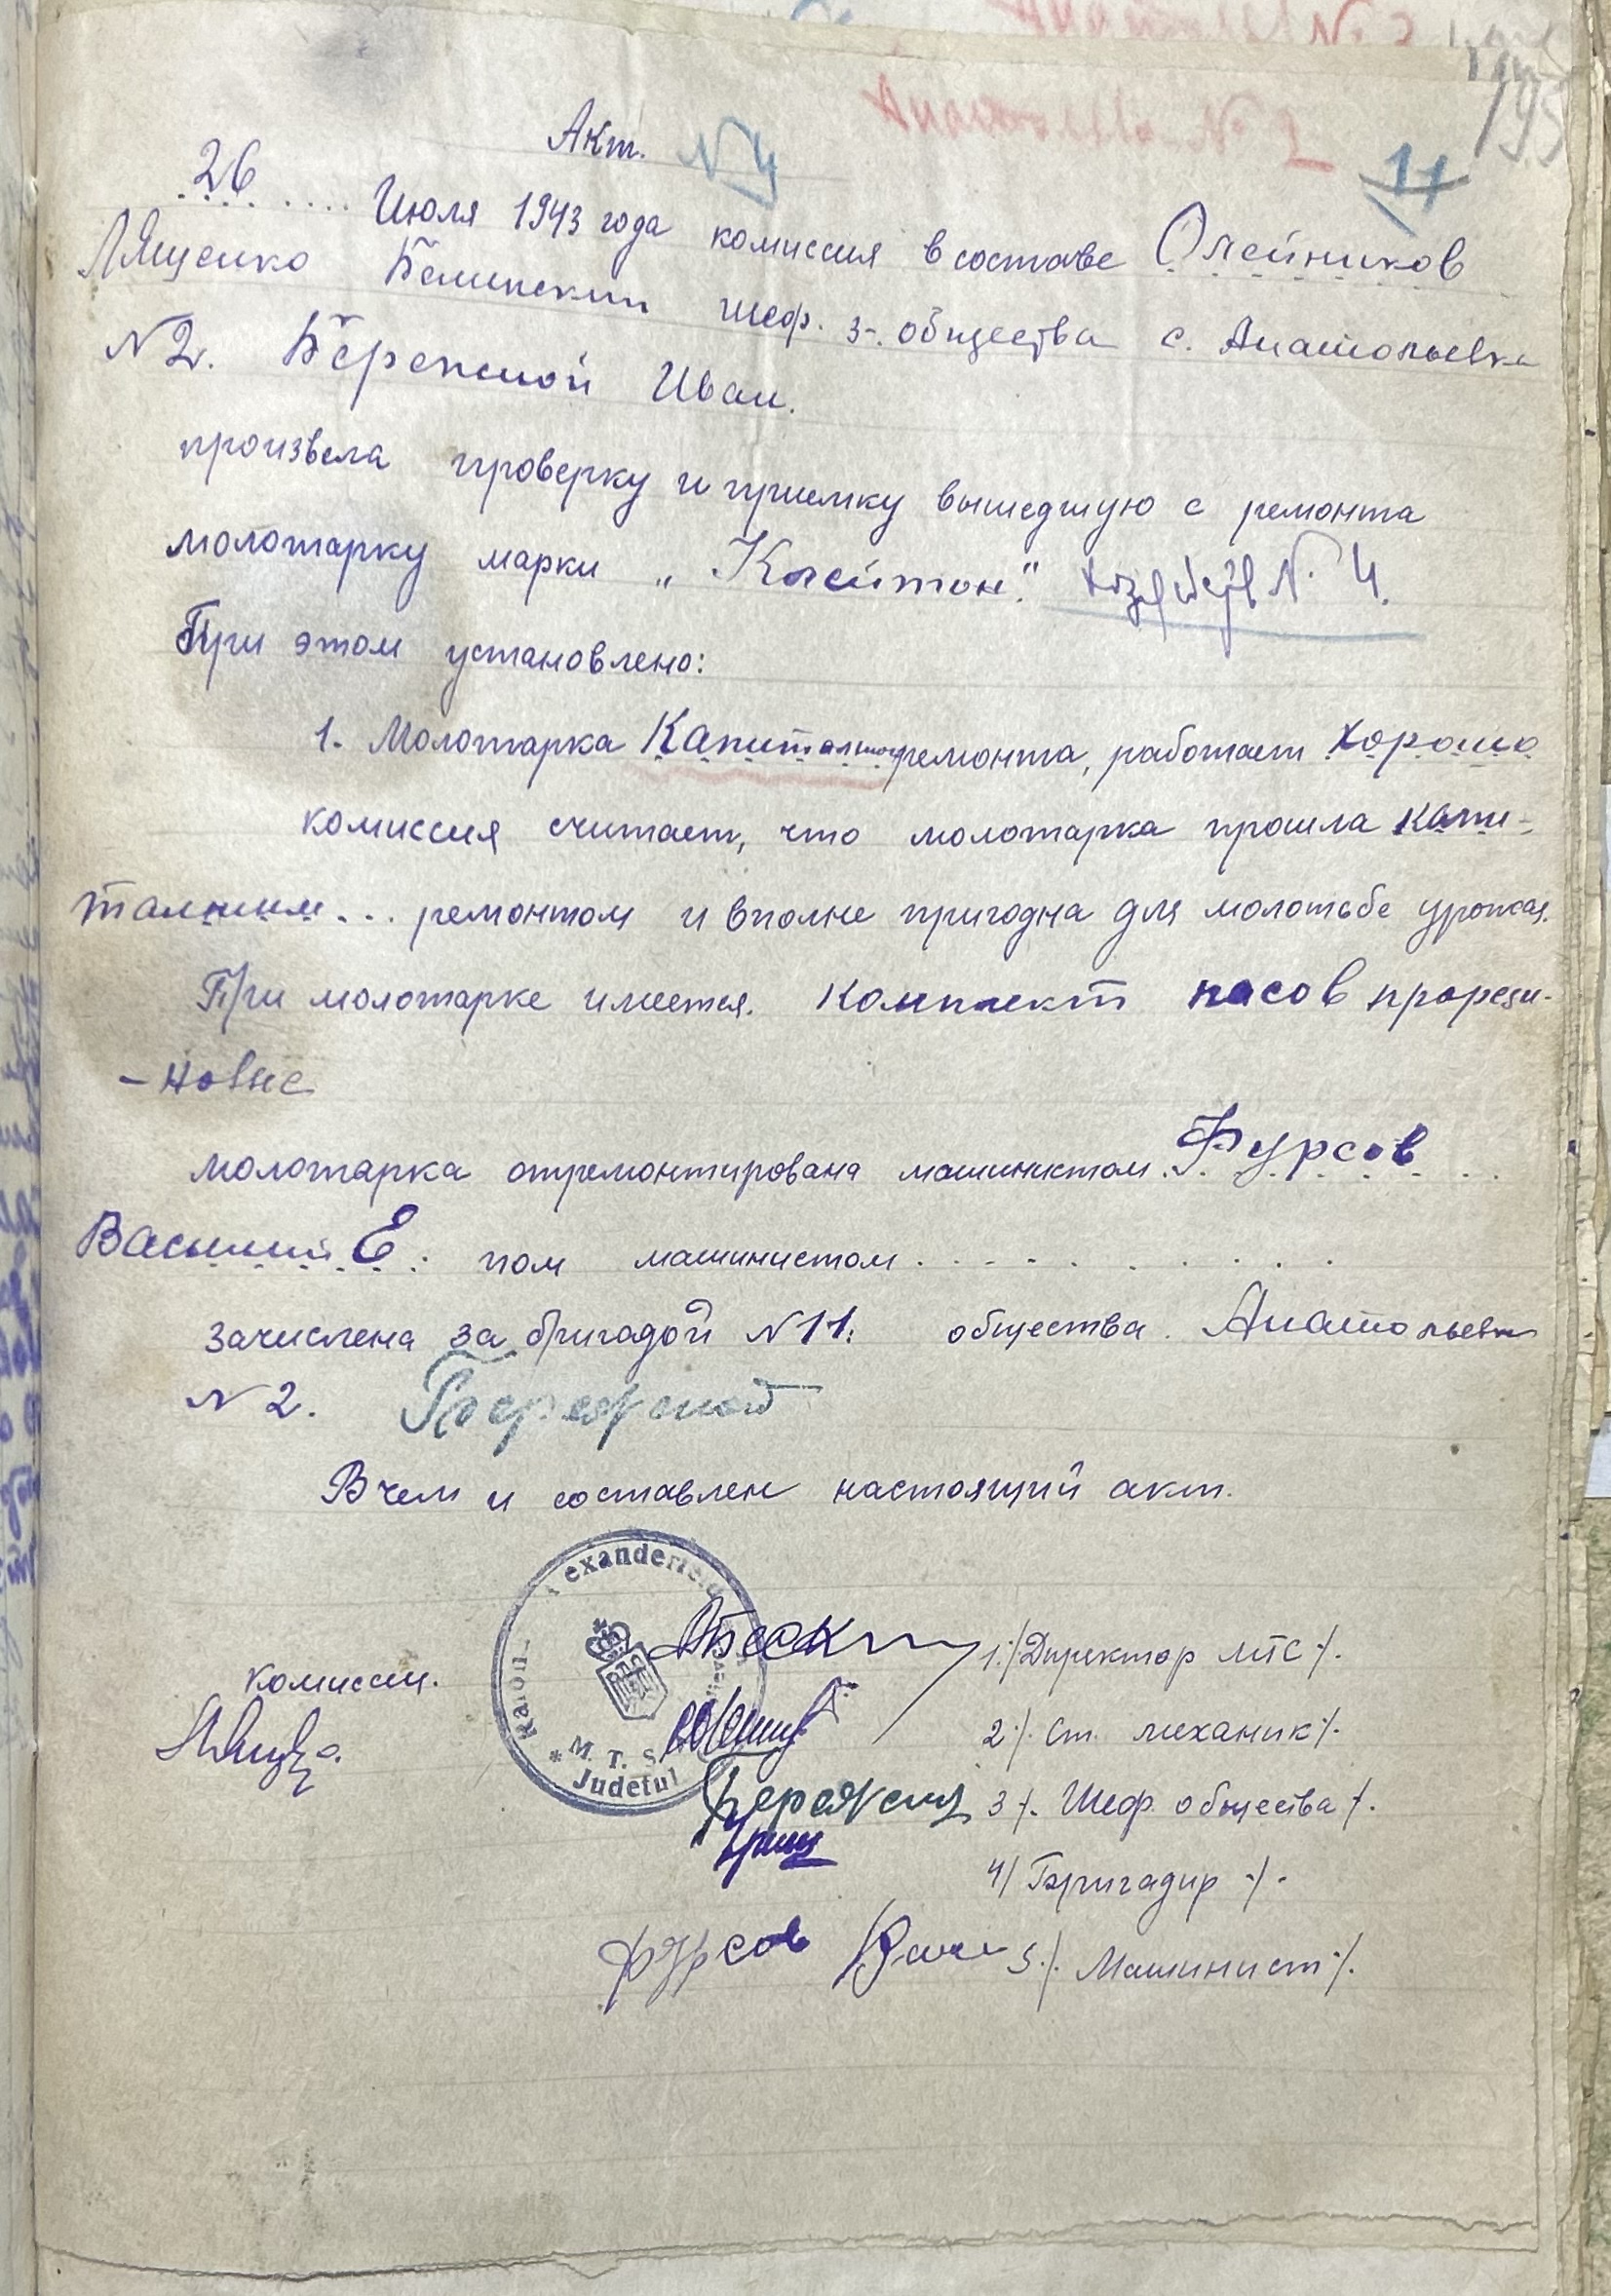 195
Акт. N 4
11
26 .... Июля 1943 года комиссия в составе Олейников
Лященко Белинский шеф. з-. общества с. Анатольевка
N 2. Бережной Иван.
произвела проверку и приемку вышедшую с ремонта
молотарку марки „Клейтон." N. 4.
При этом установлено:
1. Молотарка Капитальног ремонта, работает хорошо
комиссия считает, что молотарка прошла капи-
тальним... ремонтом и вполне пригодна для молотьбе урожая.
При молотарке имеется. Комплект пасов прорези-
- новые
молотарка отремонтирована машинистом. Фурсов
Василий Е. пом машинистом . . . . . . . .
зачислена за бригадой N 11. общества. Анатольевка
N 2. Бережной
В чем и составлен настоящий акт.
Raion
M. T. S.
Judetul
комиссии.
1./Директор МТС/.
2/. Ст. механик/.
Бережной 3/. Шеф. общества/.
4/ Бригадир /.
Фурсов 5./. Машинист/.